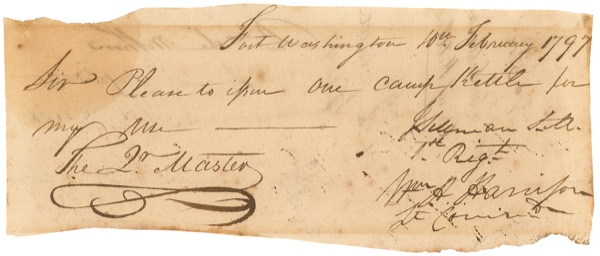 Fort Washington 10th February 1797
Sir Please to issue one camp Kettle for
my use
The Qr Master
1st Regt
Wm H. Harrison
Lt Comm